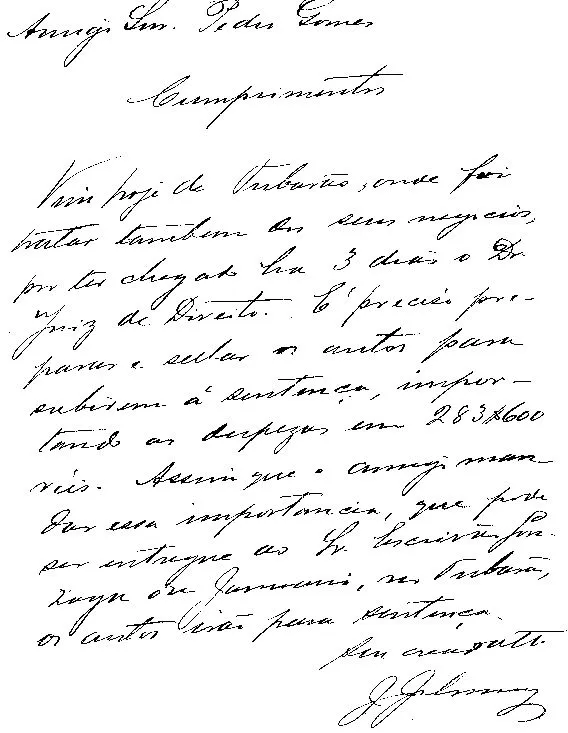 Amigo Snr. Pedro Gomes
Cumprimentos
Vim hoje de Tubarão, onde fui
tratar tambem dos seus negocios,
por ter chegado ha 3 dias o Dr.
Juiz de Direito. É preciso pre-
parar e sellar os autos para
subirem á sentença, impor-
tando as despezas em 283$600
réis. Assim que o amigo man-
dar essa importancia, que pode
ser entregue ao Sr. Escrivão Gon-
zaga, no Tubarão,
os autos irão para sentença.
Seu
J.